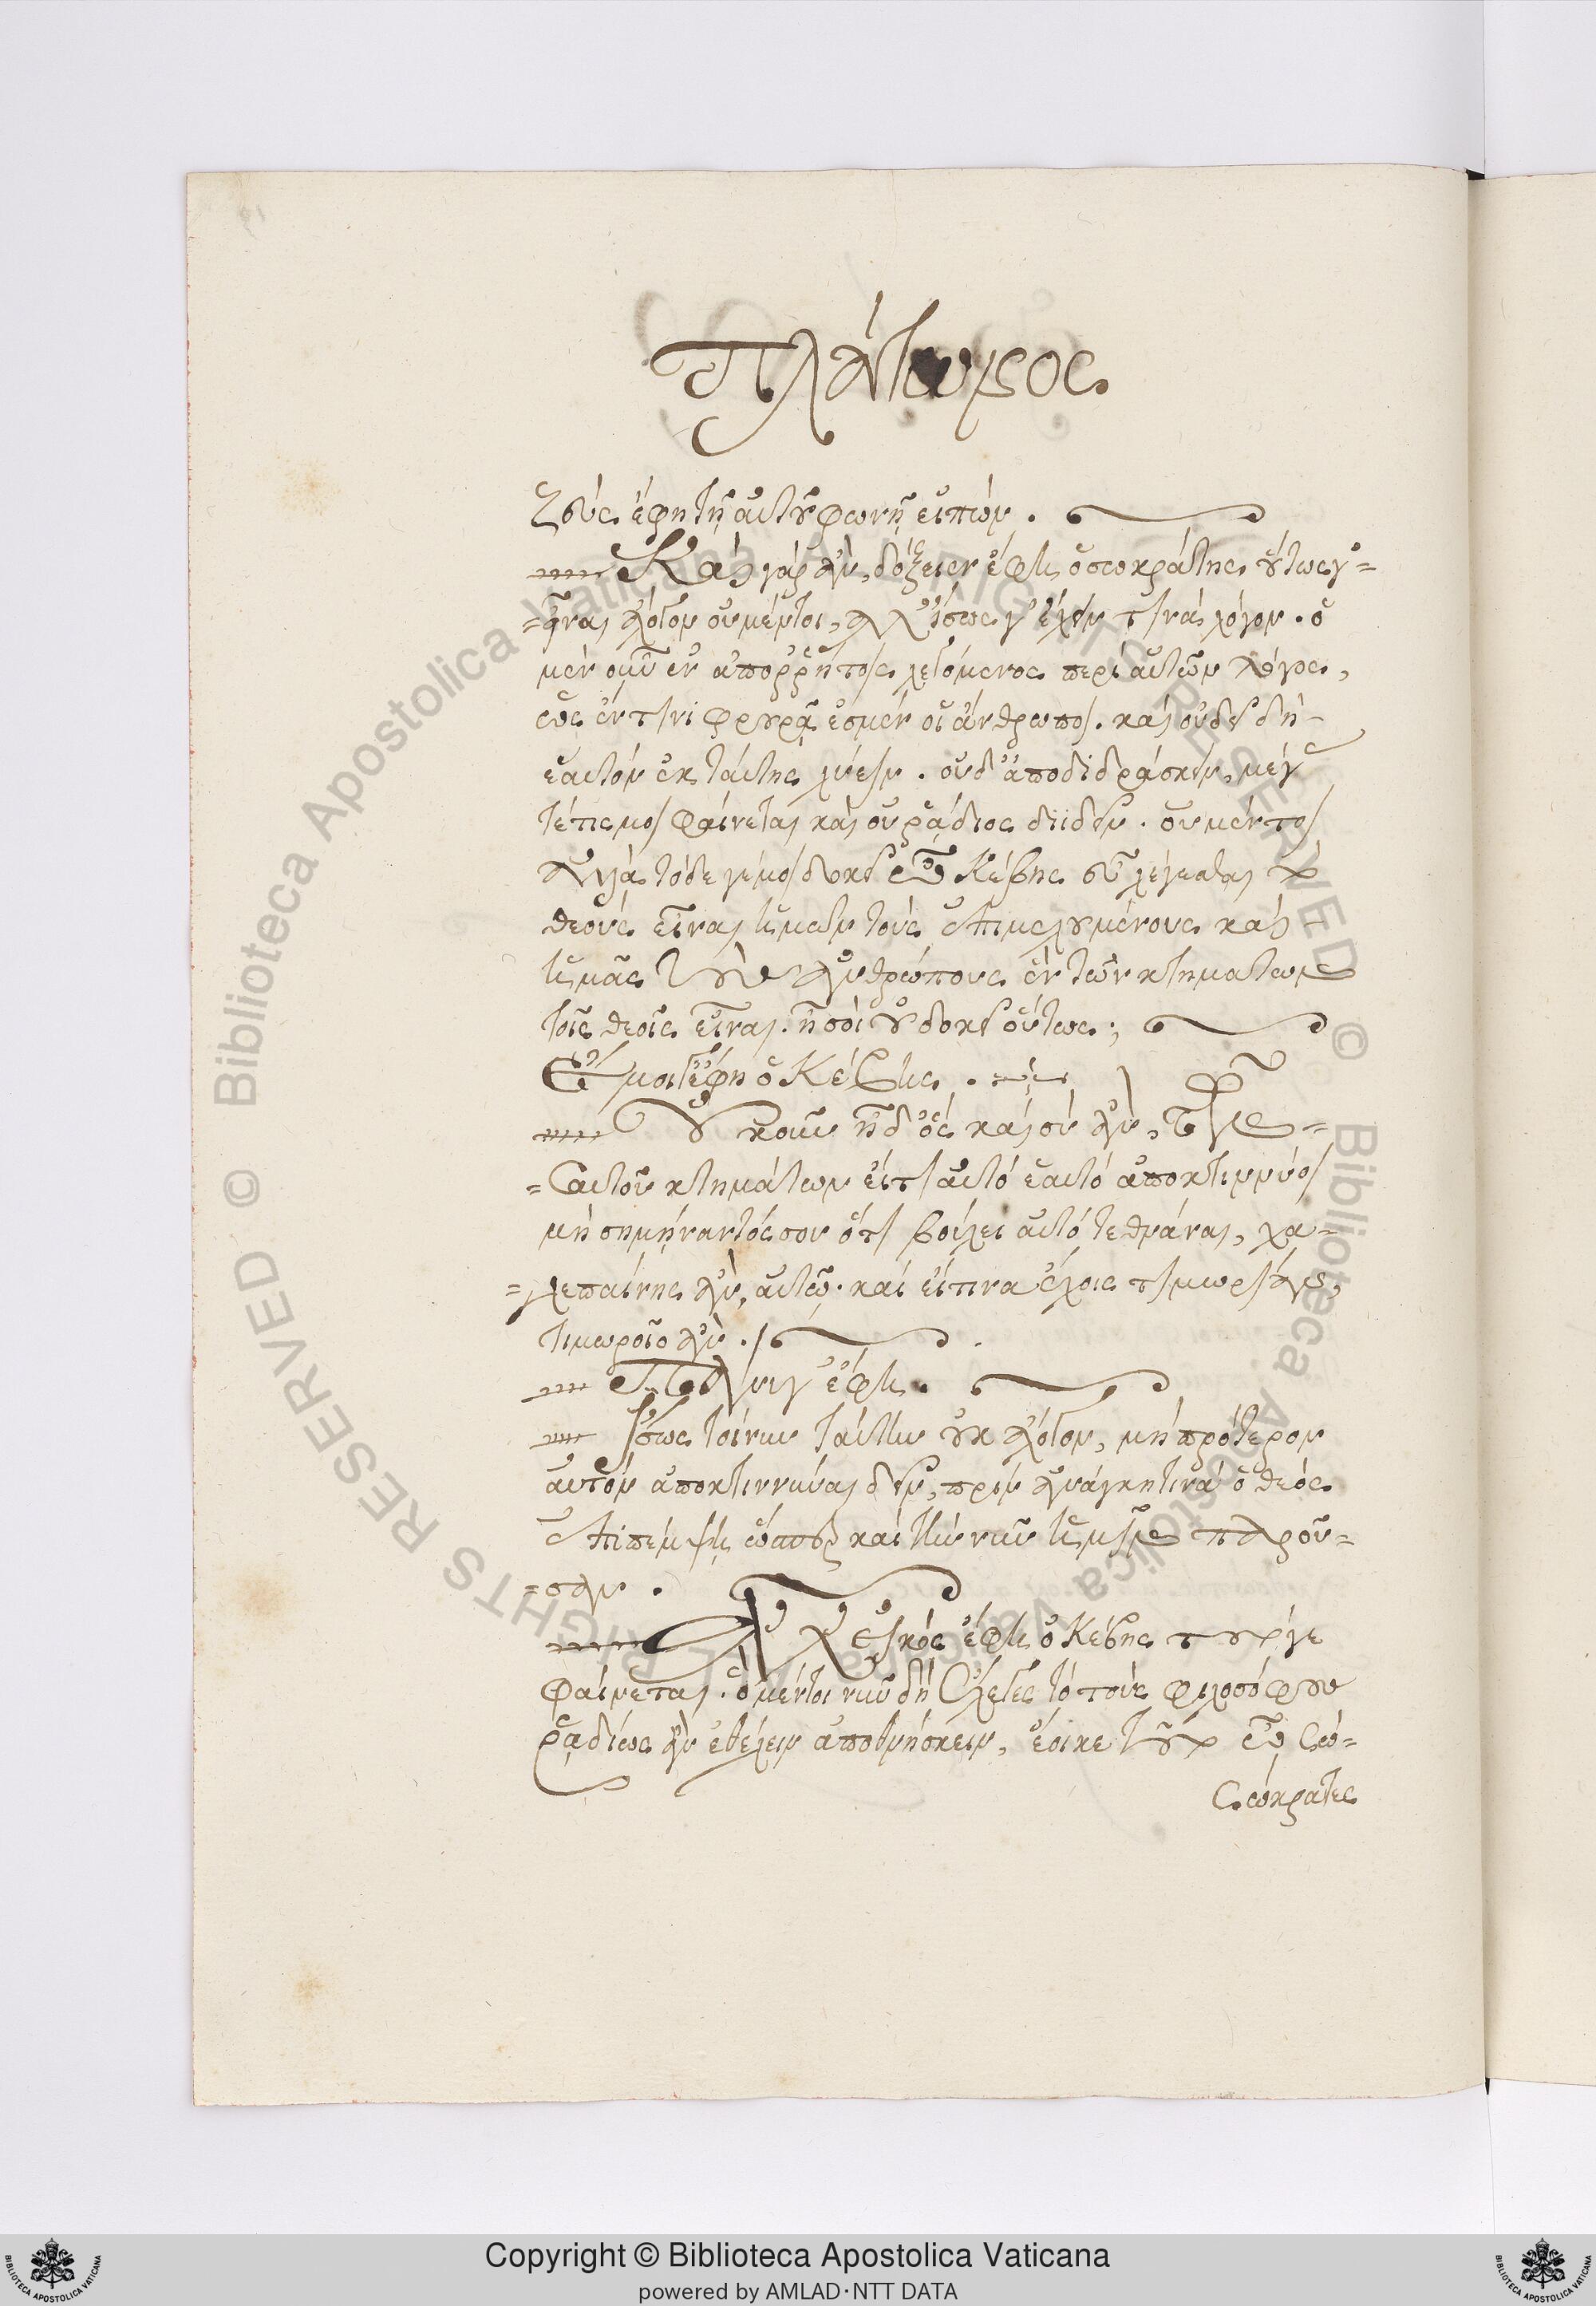 Πλάτωνος
Ζεύς ἔφη τῇ αὐτοῦ φωνῇ εἰπών.
Καὶ γάρ ἂν, δόξειεν ἔφη ὁ σωκράτης οὕτως γ'
εἶναι ἄλογον οὐ μέντοι, ἀλλ' ἴσως γ' ἔχειν τινά λόγον. ὁ
μέν οὖν ἐν ἀπορρήτοις λεγόμενος περὶ αὐτῶν λόγος,
ὡς ἔν τινι φρουρᾷ ἐσμέν οἱ ἄνθρωποι. καὶ οὐ δεῖ δή
ἑαυτόν ἐκ ταύτης λύειν. οὐδ' ἀποδιδράσκειν, μέγ
τέ τις μοι φαίνεται καὶ οὐ ῥᾴδιος διιδεῖν. οὐ μέντοι
ἀλλά τόδε γέ μοι δοκεῖ ὦ Κέβης εὖ λέγεσθαι τὸ
θεούς εἶναι ἡμῶν τούς ἐπιμελουμένους καὶ
ἡμᾶς τοὺς ἀνθρώπους ἓν τῶν κτημάτων
τοῖς θεοῖς εἶναι. ἢ σοί οὐ δοκεῖ οὕτως;
Ἔμοιγ' ἔφη ὁ Κέβης.
Οὐκοῦν ἦ δ' ὅς καὶ σύ ἂν, τῶν
σαυτοῦ κτημάτων εἴ τι αὐτό ἑαυτό ἀποκτιννύοι
μή σημήναντός σου ὅτι βούλει αὐτό τεθνάναι, χα
λεπαίνης ἂν, αὐτῷ. καί εἴ τινα ἔχοις τιμωρίαν,
τιμωροῖο ἄν.
Πάνυ γ' ἔφη.
Ἴσως τοίνυν ταύτην οὐκ ἄλογον, μή πρότερον
αὐτόν ἀποκτιννύναι δεῖν, πρίν ἀνάγκην τινά ὁ θεός
ἐπιπέμψῃ ὥσπερ καί τήν νῦν ἡμῖν παροῦ
σαν.
Ἀλλ' εἰκός ἔφη ὁ Κέβης τοῦτό γε
φαίνεται. ὁ μέντοι νῦν δή ἔλεγες τό τούς φιλοσόφου
ῥᾳδίως ἂν ἐθέλειν ἀποθνήσκειν, ἔοικε τοῦτο ὦ Σώ
Σώκρατες
Copyright © Biblioteca Apostolica Vaticana
powered by AMLAD·NTT DATA